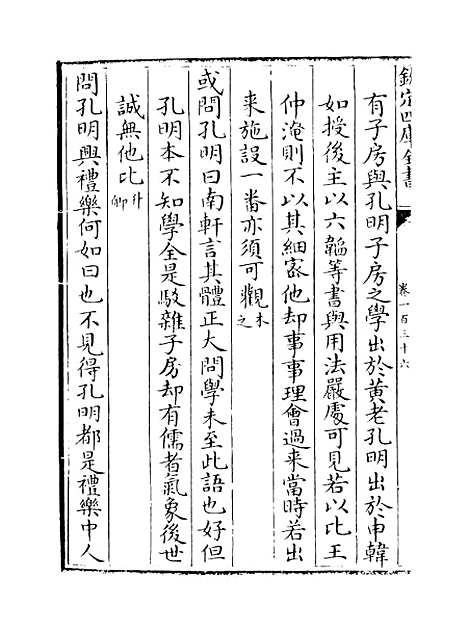 欽定四庫全書 卷一百三十六
有子房與孔明子房之學出於黃老孔明出於申韓
如授後主以六韜等書與用法嚴處可見若以比王
仲淹則不以其細宻他却事事理會過来當時若出
来施設一番亦須可觀木之
或問孔明曰南軒言其體正大問學未至此語也好但
孔明本不知學全是駁雜子房却有儒者氣象後世
誠無他比升卿
問孔明興禮樂何如曰也不見得孔明都是禮樂中人